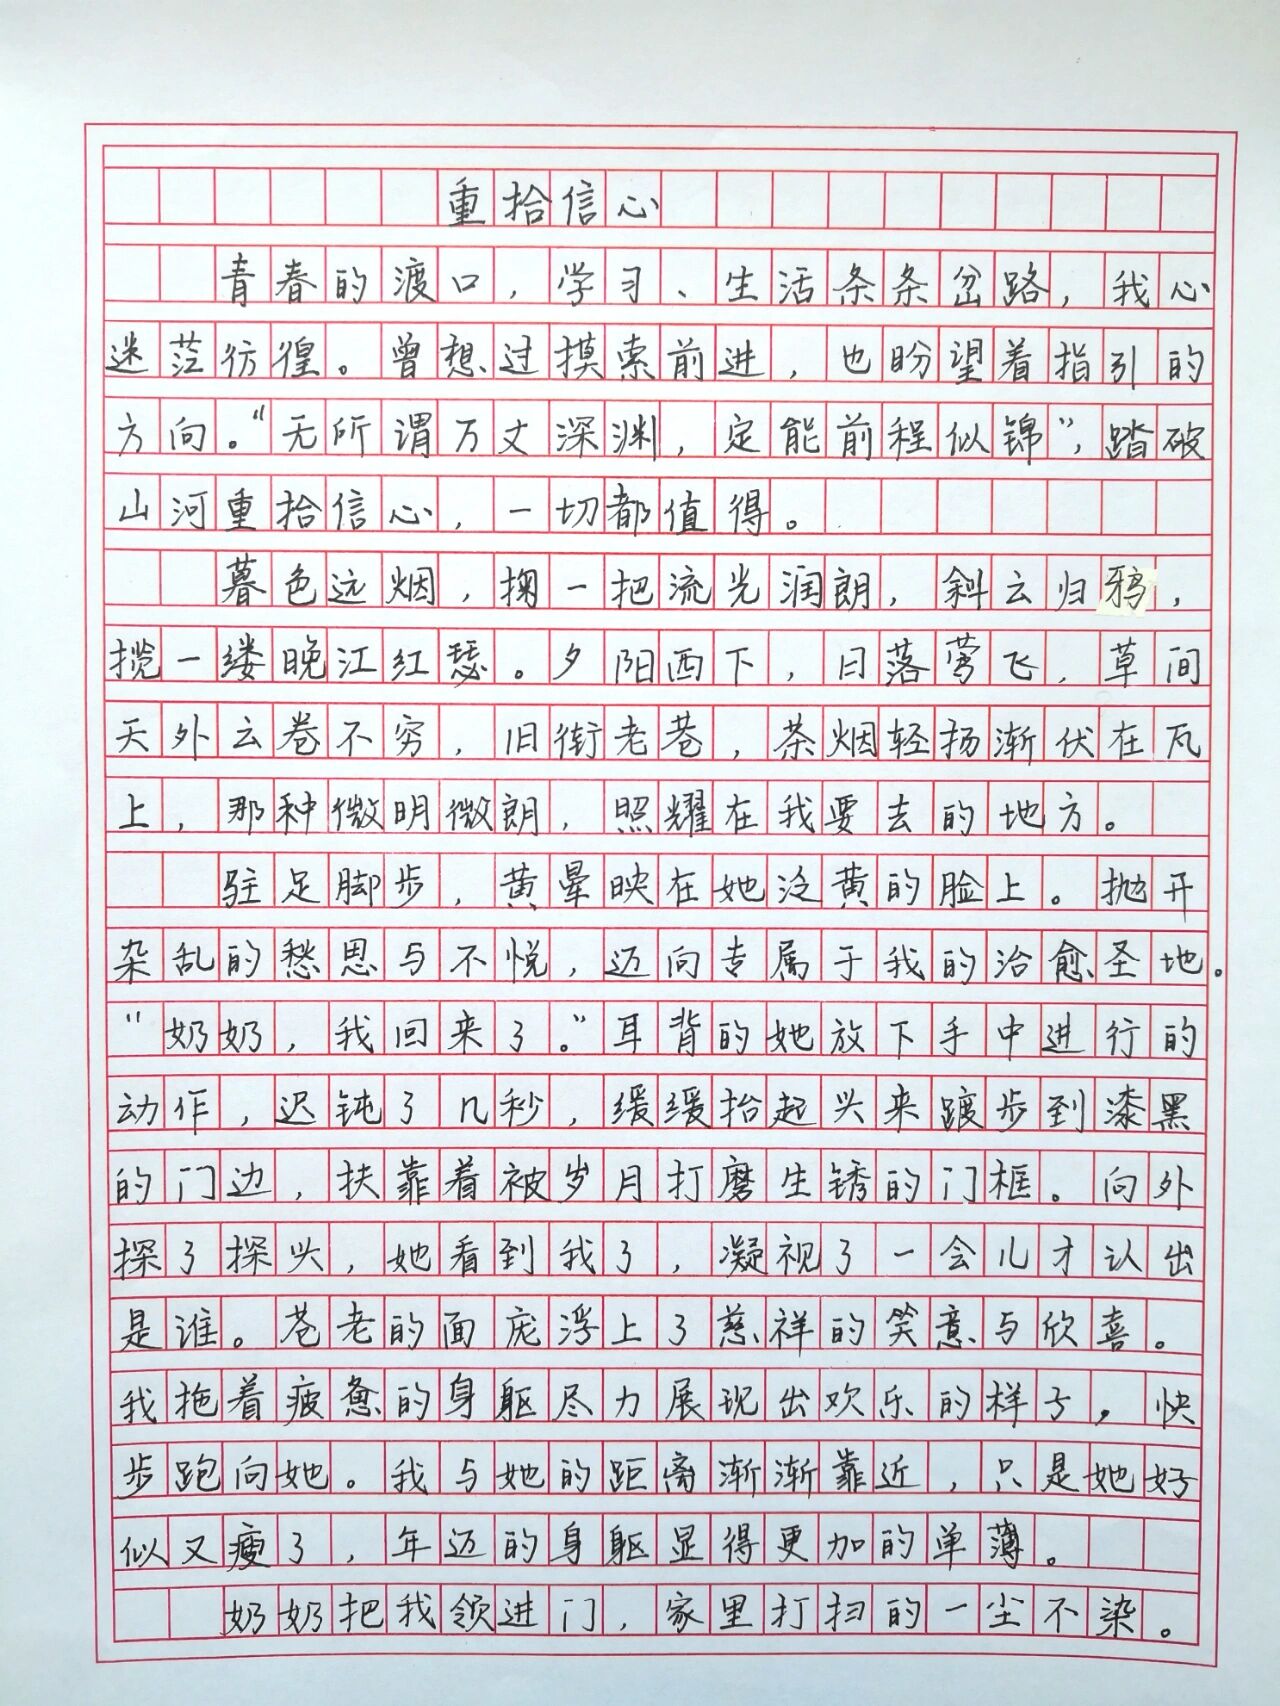 重拾信心
青春的渡口，学习、生活条条岔路，我心
迷茫彷徨。曾想过摸索前进，也盼望着指引的
方向。“无所谓万丈深渊，定能前程似锦”，踏破
山河重拾信心，一切都值得。
暮色远烟，掬一把流光润朗，斜云归鸦，
揽一缕晚江红瑟。夕阳西下，日落莺飞，草间
天外云卷不穷，旧街老巷，茶烟轻扬渐伏在瓦
上，那种微明微朗，照耀在我要去的地方。
驻足脚步，黄晕映在她泛黄的脸上。抛开
杂乱的愁思与不悦，迈向专属于我的治愈圣地。
“奶奶，我回来了。”耳背的她放下手中进行的
动作，迟钝了几秒，缓缓抬起头来踱步到漆黑
的门边，扶靠着被岁月打磨生锈的门框。向外
探了探头，她看到我了，凝视了一会儿才认出
是谁。苍老的面庞浮上了慈祥的笑意与欣喜。
我拖着疲惫的身躯尽力展现出欢乐的样子，快
步跑向她。我与她的距离渐渐靠近，只是她好
似又瘦了，年迈的身躯显得更加的单薄。
奶奶把我领进门，家里打扫的一尘不染。